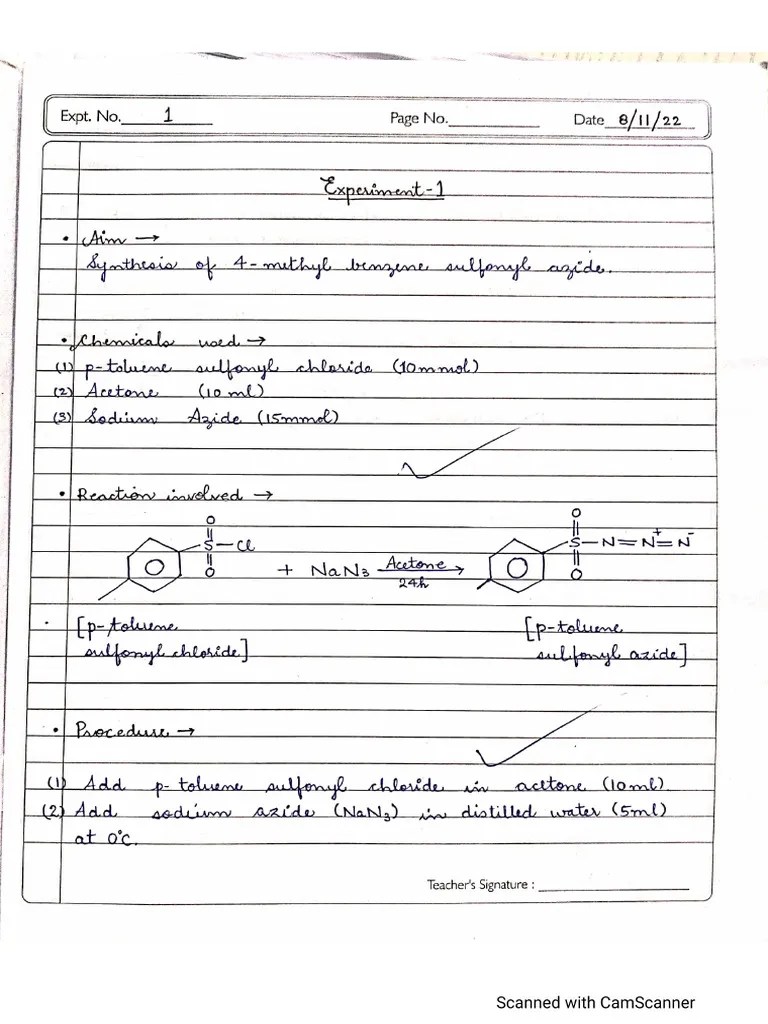 Expt. No. 1 Page No. Date 8/11/22
Experiment-1
• Aim →
Synthesis of 4-methyl benzene sulfonyl azide.
• Chemicals used →
(1) p-toluene sulfonyl chloride (10mmol)
(2) Acetone (10 ml)
(3) Sodium Azide (15mmol)
• Reaction involved →
O O
S—Cl + NaN3 Acetone → S—N=N⁺=N⁻
O 24h O
[p-toluene [p-toluene
sulfonyl chloride] sulfonyl azide]
• Procedure →
(1) Add p-toluene sulfonyl chloride in acetone (10ml)
(2) Add sodium azide (NaN3) in distilled water (5ml)
at 0°c.
Teacher's Signature :
Scanned with CamScanner